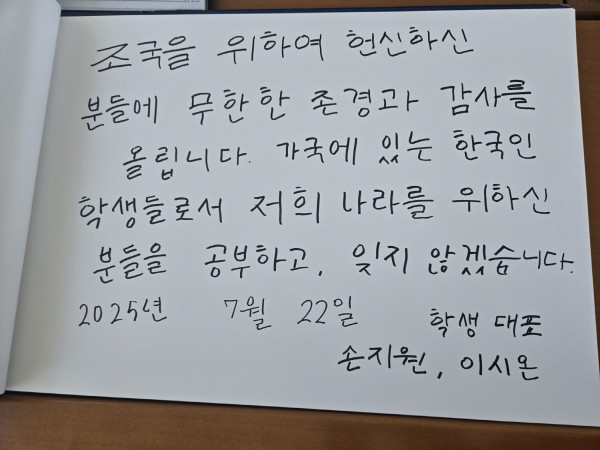 조국을 위하여 헌신하신
분들에 무한한 존경과 감사를
올립니다. 가국에 있는 한국인
학생들로서 저희 나라를 위하신
분들을 공부하고, 잊지 않겠습니다.
2025년 7월 22일 학생 대표
손지원, 이시온